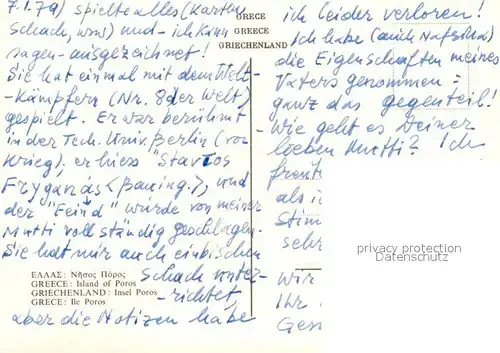 7.1.79) spielte alles (Karten,
Schach, usw) und - ich kann
sagen - ausgezeichnet!
Sie hat einmal mit dem Welt-
- Kämpfern (Nr. 8 der Welt)
gespielt. Er war berühmt
in der Tech. Univ. Berlin (vor
Krieg), er hiess "Stavros
Fryganás <Bauing.>, und
der "Feind" würde von meiner
Mutti vollständig geschlagen.
Sie hat mir auch einbischen
Schach unter-
- richtet,
aber die Notizen habe
ΕΛΛΑΣ: Νῆσος Πόρος
GREECE: Island of Poros
GRIECHENLAND: Insel Poros
GRECE: Ile Poros
GRECE
GREECE
GRIECHENLAND
ich leider verloren!
Ich habe (auch
die Eigenschaften meines
Vaters genommen =
ganz das gegenteil!
- Wie geht es Deiner
lieben Mutti? Ich
als i
Stim
sehr
privacy protection
Datenschutz
Wir
Ihr
Gess